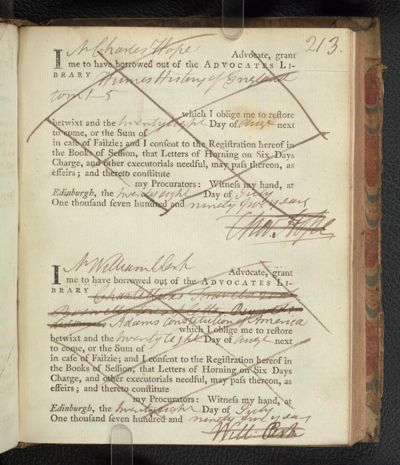 213.
I Mr Charles Hope Advocate, grant
me to have borrowed out of the ADVOCATES LI-
BRARY Humes History of England
tom 1-5
which I oblige me to restore
betwixt and the twenty eight Day of Augt next
to come, or the Sum of
in case of Failzie; and I consent to the Registration hereof in
the Books of Session, that Letters of Horning on Six Days
Charge, and other executorials needful, may pass thereon, as
effeirs; and thereto constitute
my Procurators: Witness my hand, at
Edinburgh, the twenty eight Day of July
One thousand seven hundred and ninety five years
Chas. Hope
I Mr William Clerk Advocate, grant
me to have borrowed out of the ADVOCATES LI-
BRARY Travels
Adams Constitution of America
which I oblige me to restore
betwixt and the twenty eight Day of Augt next
to come, or the Sum of
in case of Failzie; and I consent to the Registration hereof in
the Books of Session, that Letters of Horning on Six Days
Charge, and other executorials needful, may pass thereon, as
effeirs; and thereto constitute
my Procurators: Witness my hand, at
Edinburgh, the twenty eight Day of July
One thousand seven hundred and ninety five years
Will. Clerk